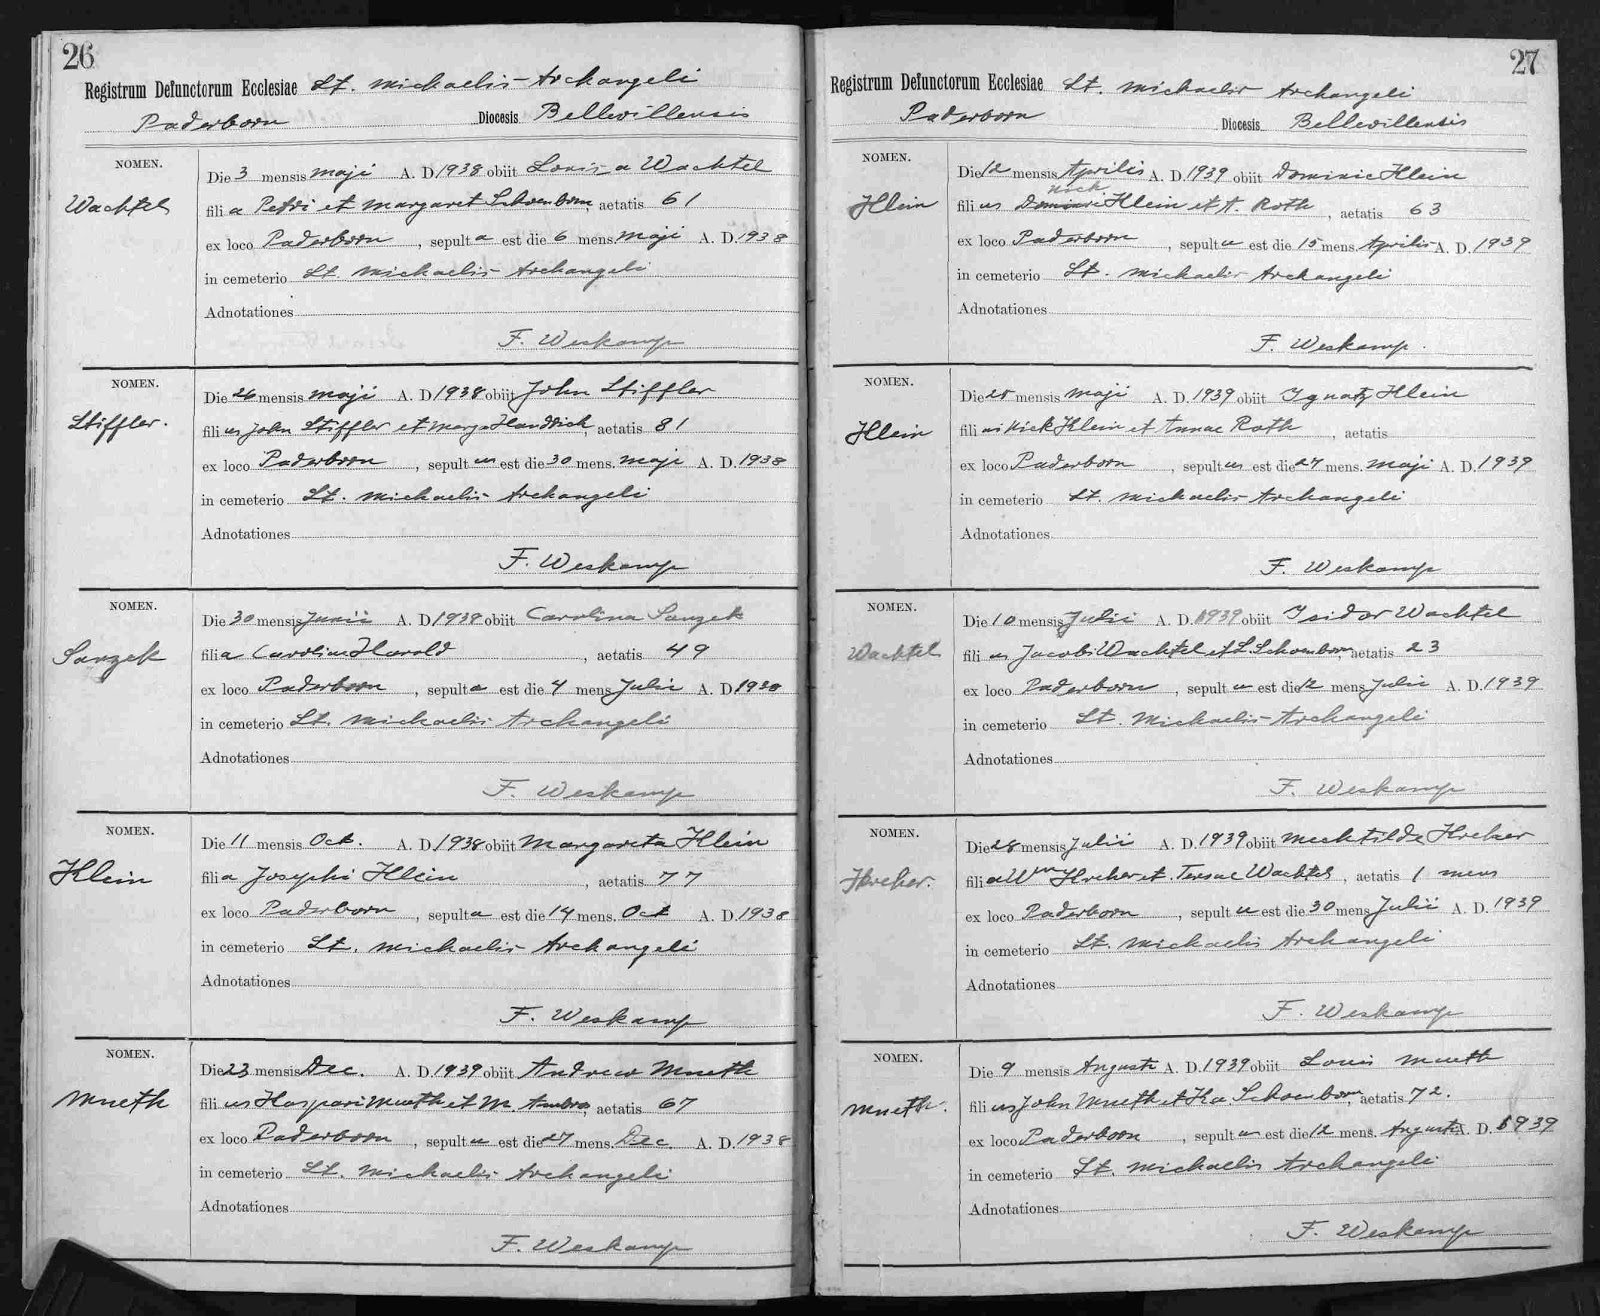 26
Registrum Defunctorum Ecclesiae St. Michaelis-Archangeli
Paderborn Diocesis Bellevillensis
NOMEN.
Wachtel
Die 3 mensis Maji A. D. 1938 obiit Louisa Wachtel
filia Petri et Margaret Schoenborn, aetatis 61
ex loco Paderborn, sepulta est die 6 mens. Maji A. D. 1938
in cemeterio St. Michaelis-Archangeli
Adnotationes
F. Weskamp
NOMEN.
Stiffler.
Die 26 mensis Maji A. D. 1938 obiit John Stiffler
filius John Stiffler et Marg. aetatis 81
ex loco Paderborn, sepultus est die 30 mens. Maji A. D. 1938
in cemeterio St. Michaelis-Archangeli
Adnotationes
F. Weskamp
NOMEN.
Die 30 mensis Junii A. D. obiit Carolina
filia Caroline Harold, aetatis 49
ex loco Paderborn, sepulta est die 4 mens Julii A. D.
in cemeterio St. Michaelis Archangeli
Adnotationes
F. Weskamp
NOMEN.
Klein
Die 11 mensis Oct. A. D. 1938 obiit Margareta Klein
filia Josephi Klein, aetatis 77
ex loco Paderborn, sepulta est die 14 mens. Oct A. D. 1938
in cemeterio St. Michaelis-Archangeli
Adnotationes
F. Weskamp
NOMEN.
Mueth
Die 23 mensis Dec. A. D. 1939 obiit Andrew Mueth
filius Kaspari Mueth et M. Ambro, aetatis 67
ex loco Paderborn, sepultu est die 27 mens. Dec. A. D. 1938
in cemeterio St. Michaelis Archangeli
Adnotationes
F. Weskamp
27
Registrum Defunctorum Ecclesiae St. Michaelis Archangeli
Paderborn Diocesis Bellevillensis
NOMEN.
Klein
Die 12 mensis Aprilis A. D. 1939 obiit Dominic Klein
Nick
filius Klein et A. Roth, aetatis 63
ex loco Paderborn, sepultu est die 15 mens. Aprilis A. D. 1939
in cemeterio St. Michaelis Archangeli
Adnotationes
F. Weskamp.
NOMEN.
Klein
Die 25 mensis Maji A. D. 1939 obiit Ignatz Klein
filius Nick Klein et Annae Roth, aetatis
ex loco Paderborn, sepultus est die 27 mens. Maji A. D. 1939
in cemeterio St. Michaelis-Archangeli
Adnotationes
F. Weskamp
NOMEN.
Wachtel
Die 10 mensis Julii A. D. 1939 obiit Isidor Wachtel
filius Jacobi Wachtel et L. Schoenborn, aetatis 23
ex loco Paderborn, sepultu est die 12 mens Julii A. D. 1939
in cemeterio St. Michaelis-Archangeli
Adnotationes
F. Weskamp
NOMEN.
Kreher.
Die 28 mensis Julii A. D. 1939 obiit Mechtilde Kreher
filia Wm Kreher et. Teresae Wachtel, aetatis 1 mens
ex loco Paderborn, sepultu est die 30 mens Julii A. D. 1939
in cemeterio St. Michaelis Archangeli
Adnotationes
F. Weskamp
NOMEN.
Mueth.
Die 9 mensis Augusti A. D. 1939 obiit Louis Mueth
filius John Mueth et Ka. Schoenborn, aetatis 72.
ex loco Paderborn, sepultus est die 12 mens. Augusti A. D. 1939
in cemeterio St. Michaelis Archangeli
Adnotationes
F. Weskamp